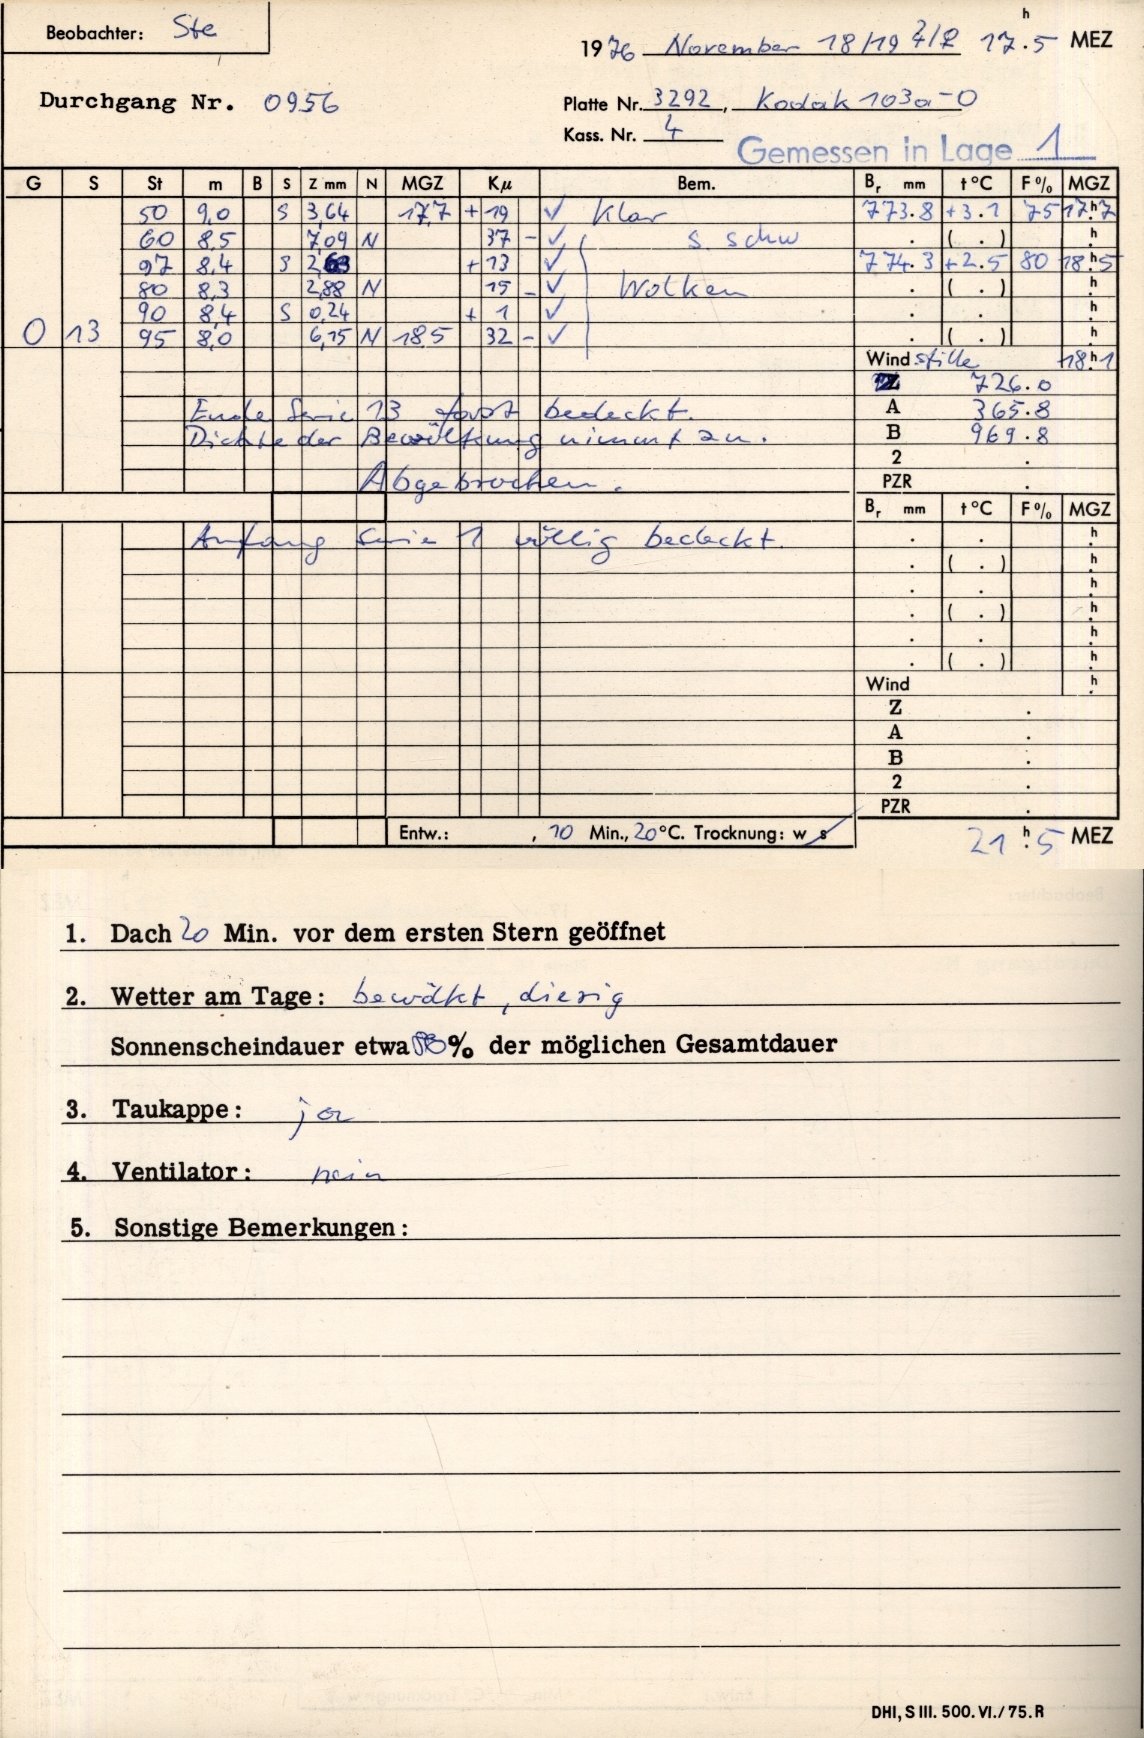 Beobachter: Ste
1976 November 18/19 17h.5 MEZ
Durchgang Nr. 0956
Platte Nr. 3292, Kodak 103a-O
Kass. Nr. 4
Gemessen in Lage 1
G S St m B S Z mm N MGZ Kμ Bem. Br mm t°C F% MGZ
50 9,0 S 3,64 17,7 + 19 ✓ Klar 773.8 +3.1 75 17h.7
60 8,5 7,09 N 37 - ✓ s. schw . ( . ) h.
97 8,4 S 2,63 + 13 ✓ 774.3 +2.5 80 18h.5
80 8,3 2,88 N 15 - ✓ Wolken . ( . ) h.
90 8,4 S 0,24 + 1 ✓ . . h.
0 13 95 8,0 6,15 N 18,5 32 - ✓ . ( . ) h.
Wind stille 18h.1
Z 726.0
Ende Serie 13 fast bedeckt. A 365.8
Dichte der Bewölkung nimmt zu. B 969.8
2 .
Abgebrochen. PZR .
Br mm t°C F% MGZ
Anfang Serie 1 völlig bedeckt. . . h.
. ( . ) h.
. . h.
. ( . ) h.
. . h.
. ( . ) h.
Wind h.
Z .
A .
B .
2 .
PZR .
Entw.: , 10 Min., 20°C. Trocknung: w s
21h.5 MEZ
1. Dach 20 Min. vor dem ersten Stern geöffnet
2. Wetter am Tage: bewölkt, diesig
Sonnenscheindauer etwa % der möglichen Gesamtdauer
3. Taukappe: ja
4. Ventilator: nein
5. Sonstige Bemerkungen:
DHI, S III. 500. VI./75. R